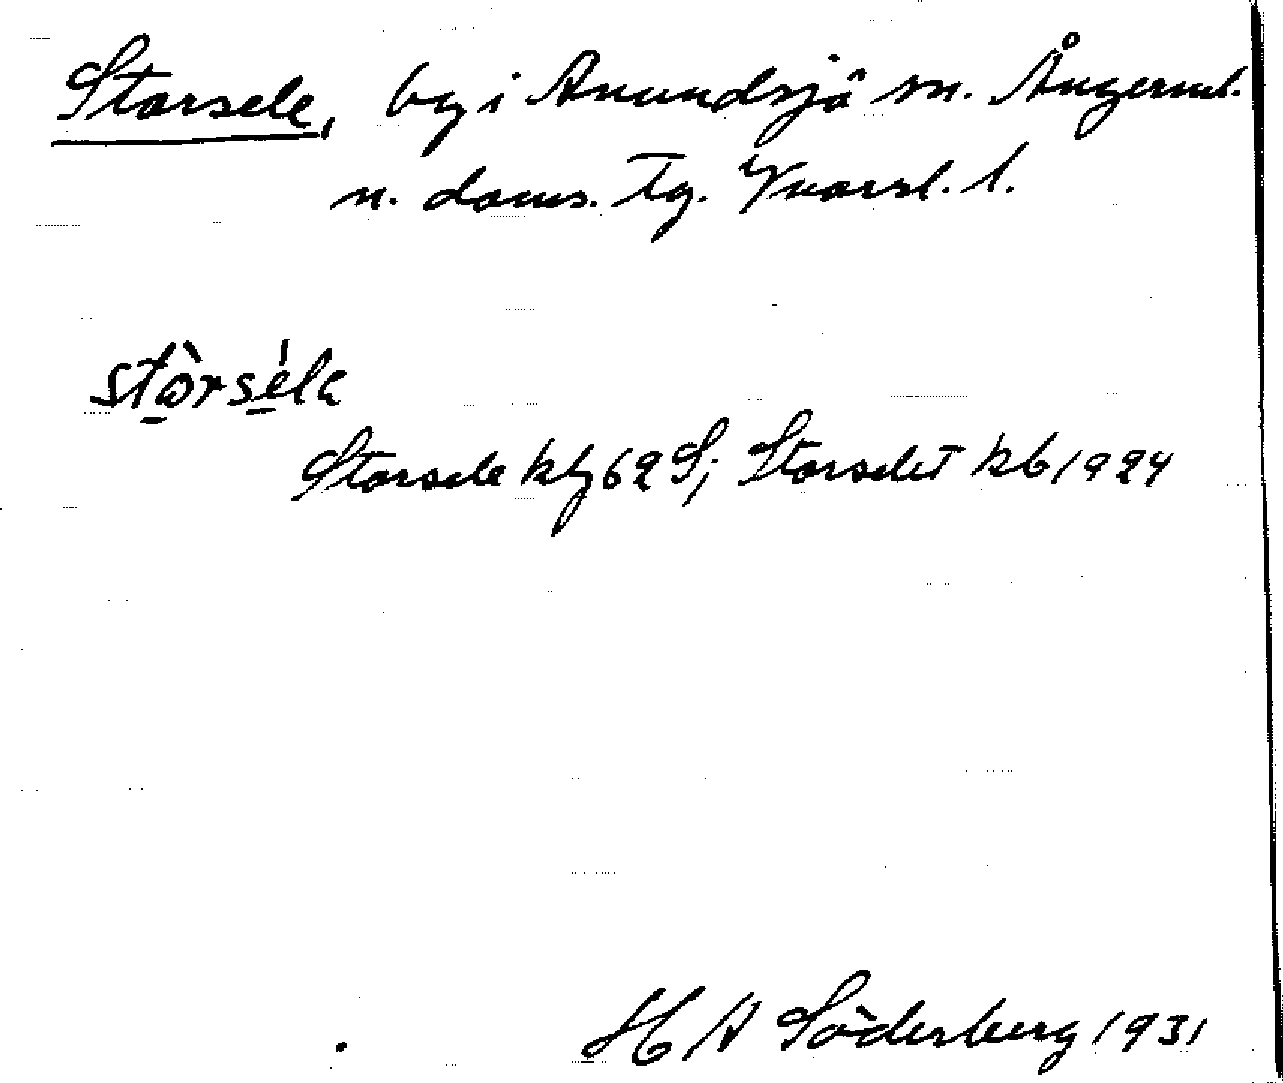 Storsele, by i Anundsjö sn. Ångerml.
n. doms. Tg. Vnorrl. l.
stòrséla
Storsele kbg 62 S; Storselet kb 1924
H A Söderberg 1931